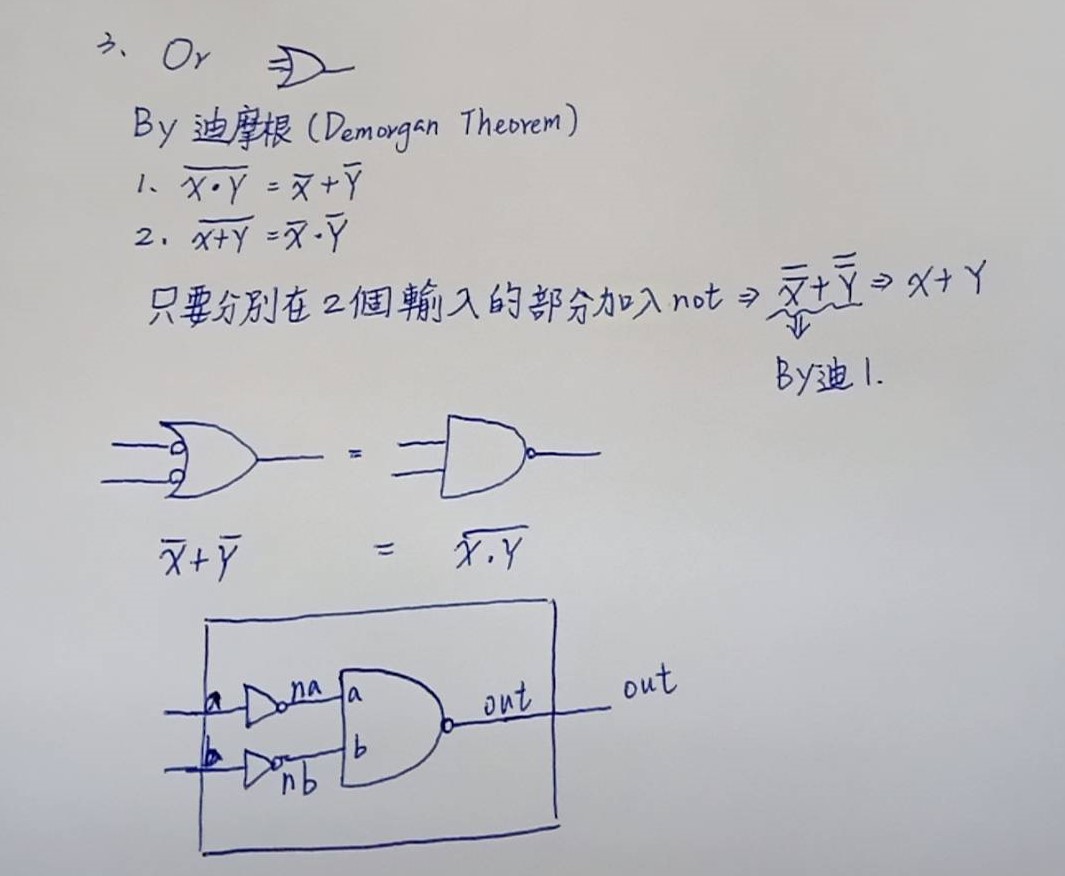 3、 Or
By 迪摩根 (Demorgan Theorem)
1、 $\overline{X \cdot Y} = \bar{X} + \bar{Y}$
2、 $\overline{X+Y} = \bar{X} \cdot \bar{Y}$
只要分別在 2 個輸入的部分加入 not ⇒ $\bar{\bar{X}} + \bar{\bar{Y}}$ ⇒ X + Y
⇓
By 迪 1.
=
$\bar{X} + \bar{Y}$ = $\overline{X \cdot Y}$
a na a out out
b nb b